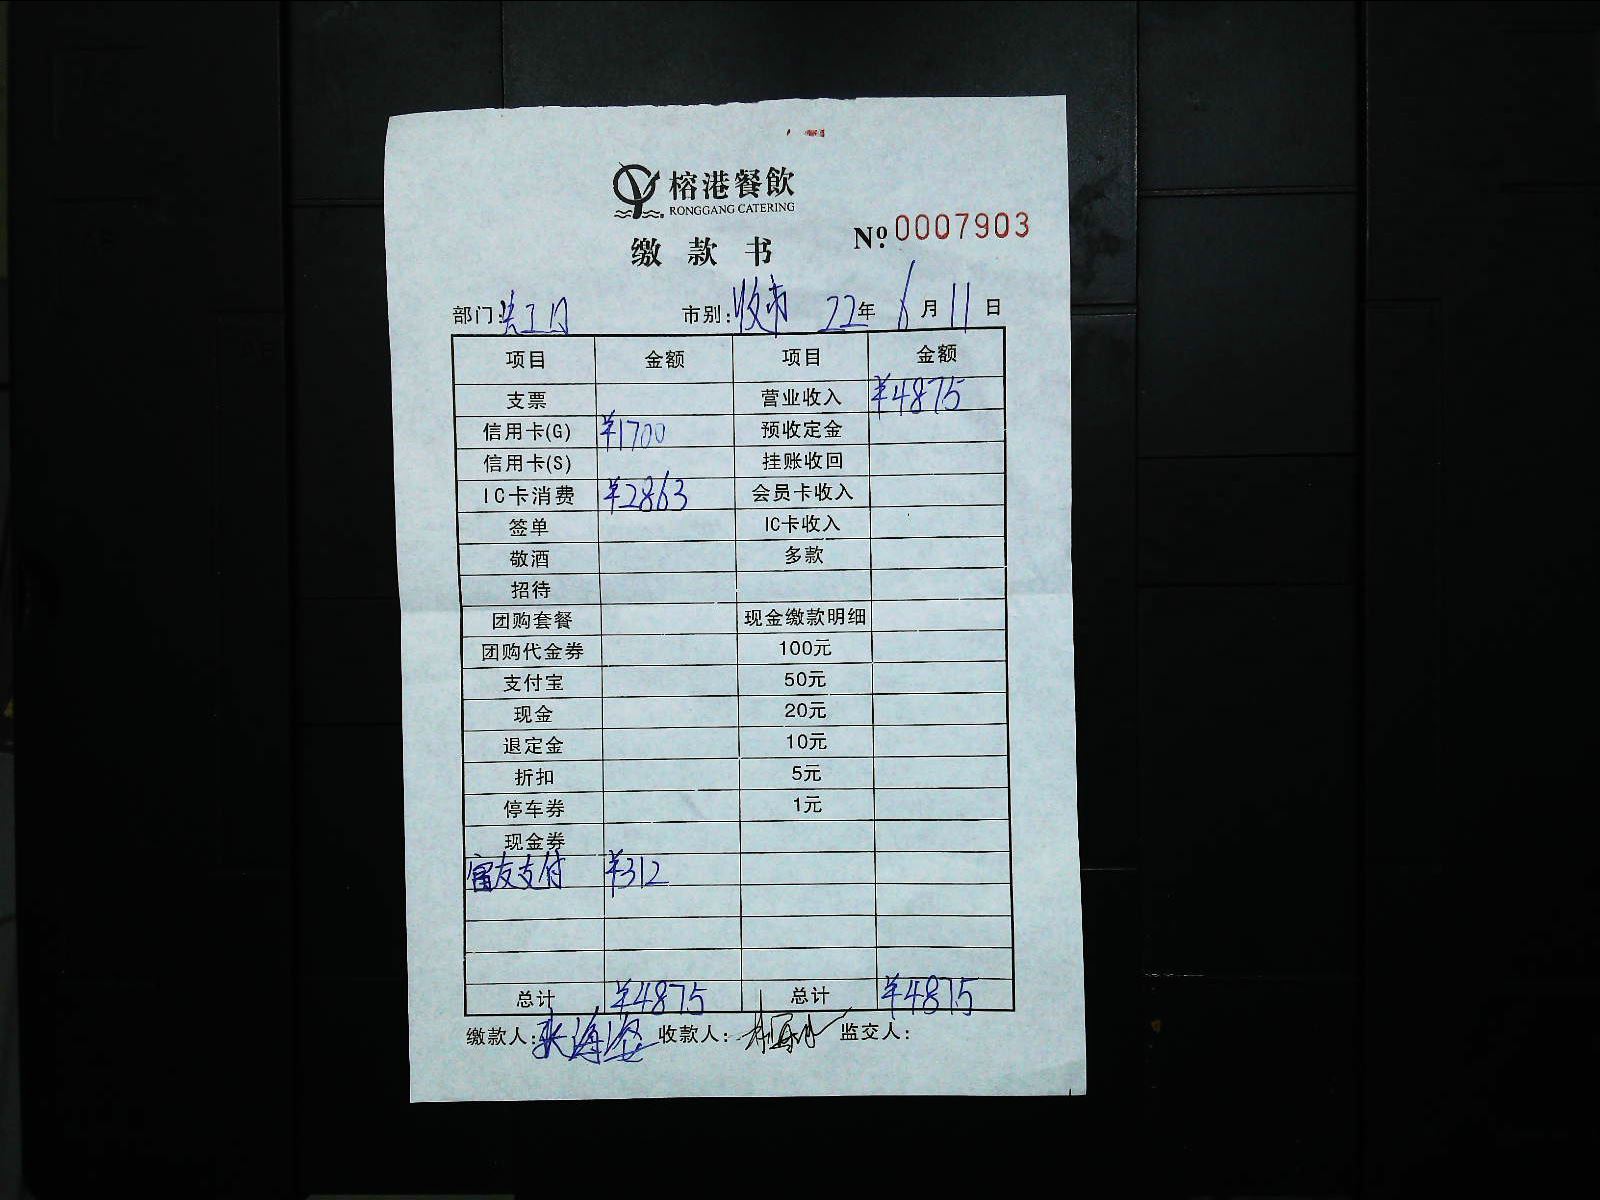 榕港餐飲
RONGGANG CATERING
缴款书
No. 0007903
部门: 市别: 收市 22年 6月 11日
项目 金额 项目 金额
支票 营业收入 ¥4875
信用卡(G) ¥1700 预收定金
信用卡(S) 挂账收回
IC卡消费 ¥2863 会员卡收入
签单 IC卡收入
敬酒 多款
招待
团购套餐 现金缴款明细
团购代金券 100元
支付宝 50元
现金 20元
退定金 10元
折扣 5元
停车券 1元
现金券
富友支付 ¥312
总计 ¥4875 总计 ¥4875
缴款人: 张海 收款人: 监交人: